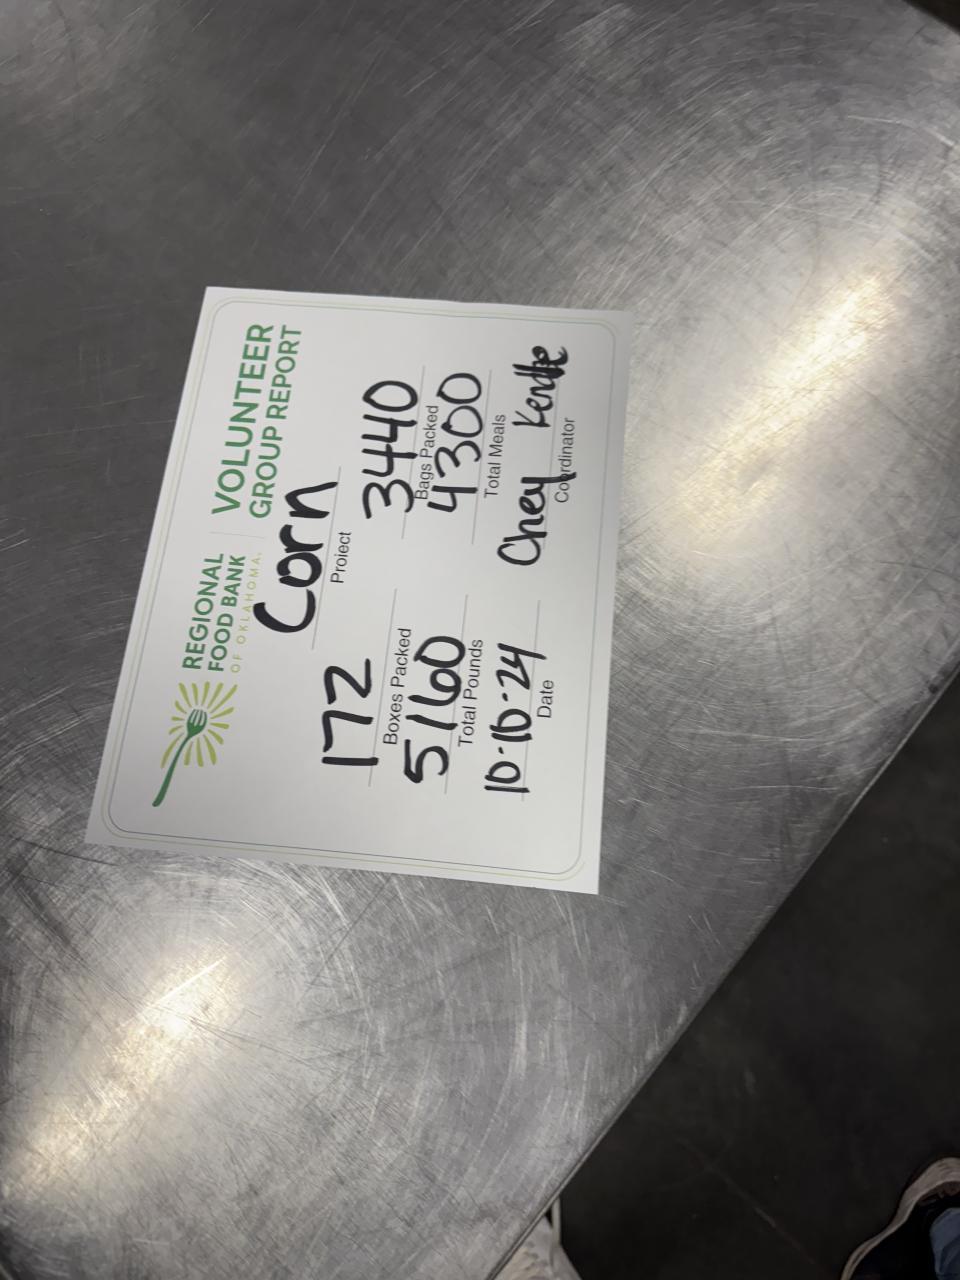 REGIONAL
FOOD BANK
OF OKLAHOMA.
VOLUNTEER
GROUP REPORT
Corn
Project
172
Boxes Packed
3440
Bags Packed
5160
Total Pounds
4300
Total Meals
10-10-24
Date
Chey
Coordinator